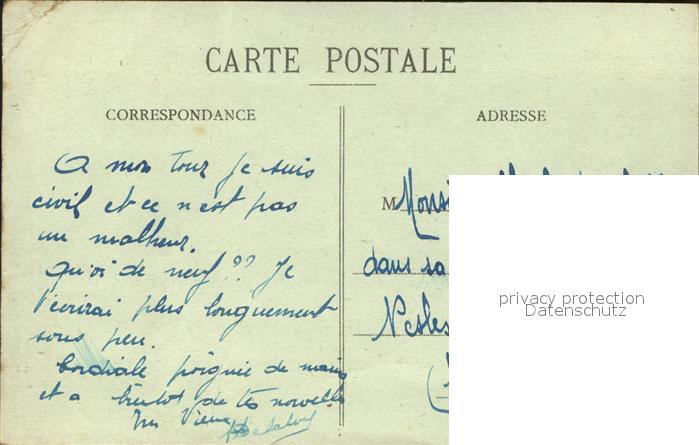 CARTE POSTALE
CORRESPONDANCE
ADRESSE
A mon tour je suis
civil et ce n'est pas
un malheur.
Quoi de neuf?? Je
t'écrirai plus longuement
sous peu.
Cordiale poignée de main
et a bientot de tes nouvelles
Ton Vieux
M Monsi
dans sa
Nesles
privacy protection
Datenschutz